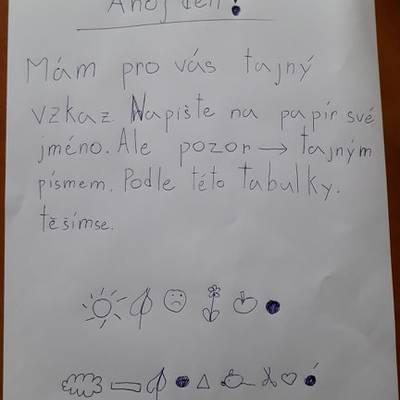 Ahoj děti!
Mám pro vás tajný
vzkaz. Napište na papír své
jméno. Ale pozor → tajným
písmem. Podle této tabulky.
těšímse.